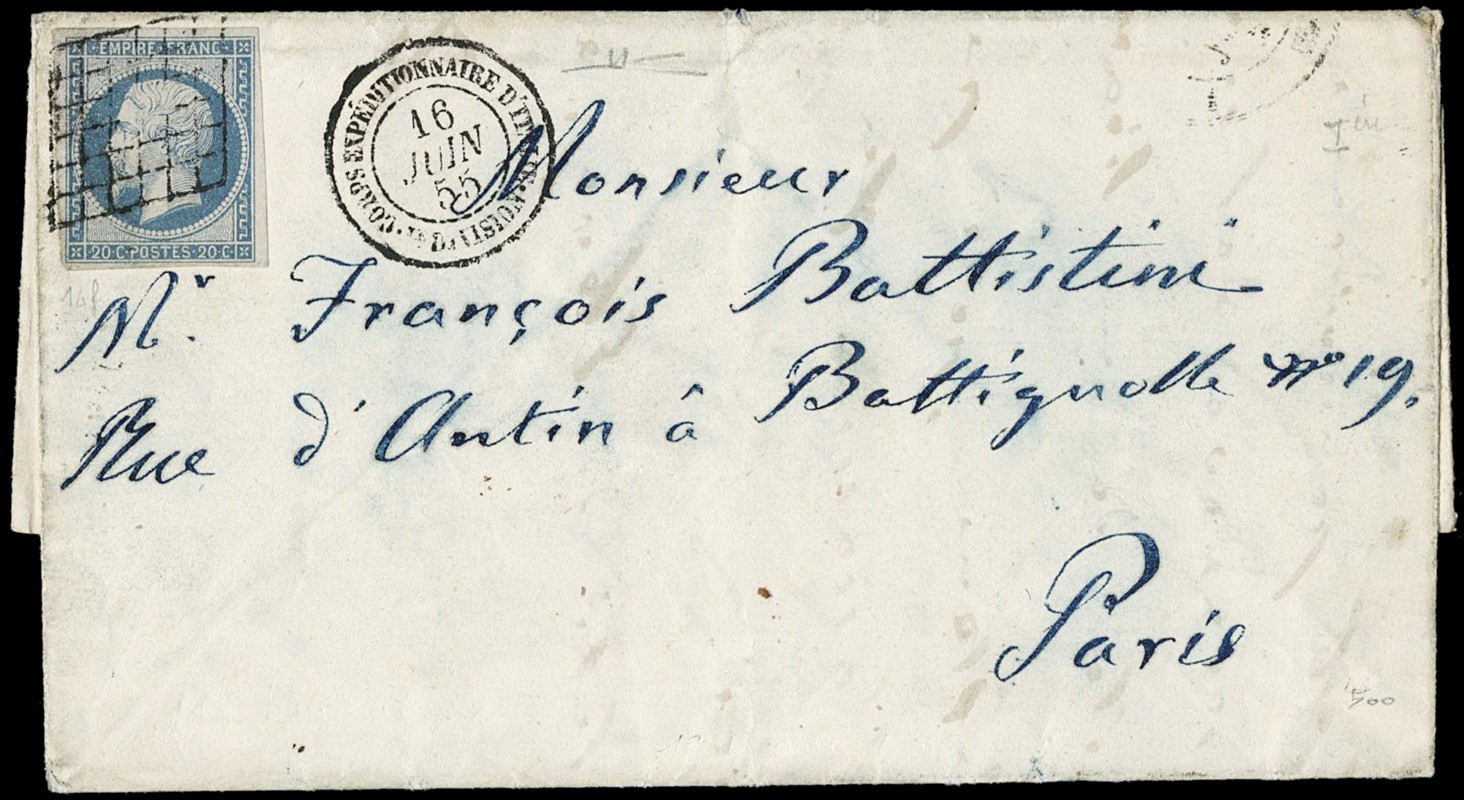 EMPIRE FRANC
20·C·POSTES·20·C
CORPS EXPÉDITIONNAIRE D'ITALIE
DIVISION
16
JUIN
55
Monsieur
Mr. François Battistini
Rue d'Antin â Battignolle no 19.
Paris
14f
500